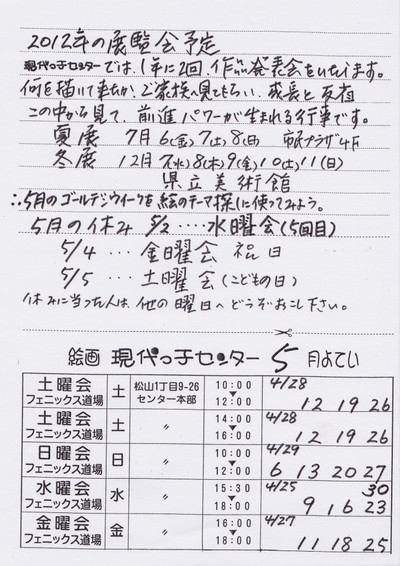 2012年の展覧会予定
現代っ子センターでは、1年に2回、作品発表会をいたします。
何を描いて来たか、ご家族へ見てもらい、成長と反省
この中から見て、前進パワーが生まれる行事です。
夏展 7月6(金)7(土)8(日) 市民プラザ4F
冬展 12月7(水)8(木)9(金)10(土)11(日)
県立美術館
∴5月のゴールデンウイークを絵のテーマ探しに使ってみよう。
5月の休み 5/2 ‥‥ 水曜会(5回目)
5/4 ‥‥ 金曜会 祝日
5/5 ‥‥ 土曜会(こどもの日)
休みに当った人は、他の曜日へどうぞおこし下さい。
絵画 現代っ子センター 5月よてい
土曜会 フェニックス道場 土 松山1丁目9-26 センター本部 10:00 ▼ 12:00 4/28 12 19 26
土曜会 フェニックス道場 土 〃 14:00 ▼ 16:00 4/28 12 19 26
日曜会 フェニックス道場 日 〃 10:00 ▼ 12:00 4/29 6 13 20 27
水曜会 フェニックス道場 水 〃 15:30 ▼ 18:00 4/25 9 16 23 30
金曜会 フェニックス道場 金 〃 16:00 ▼ 18:00 4/27 11 18 25